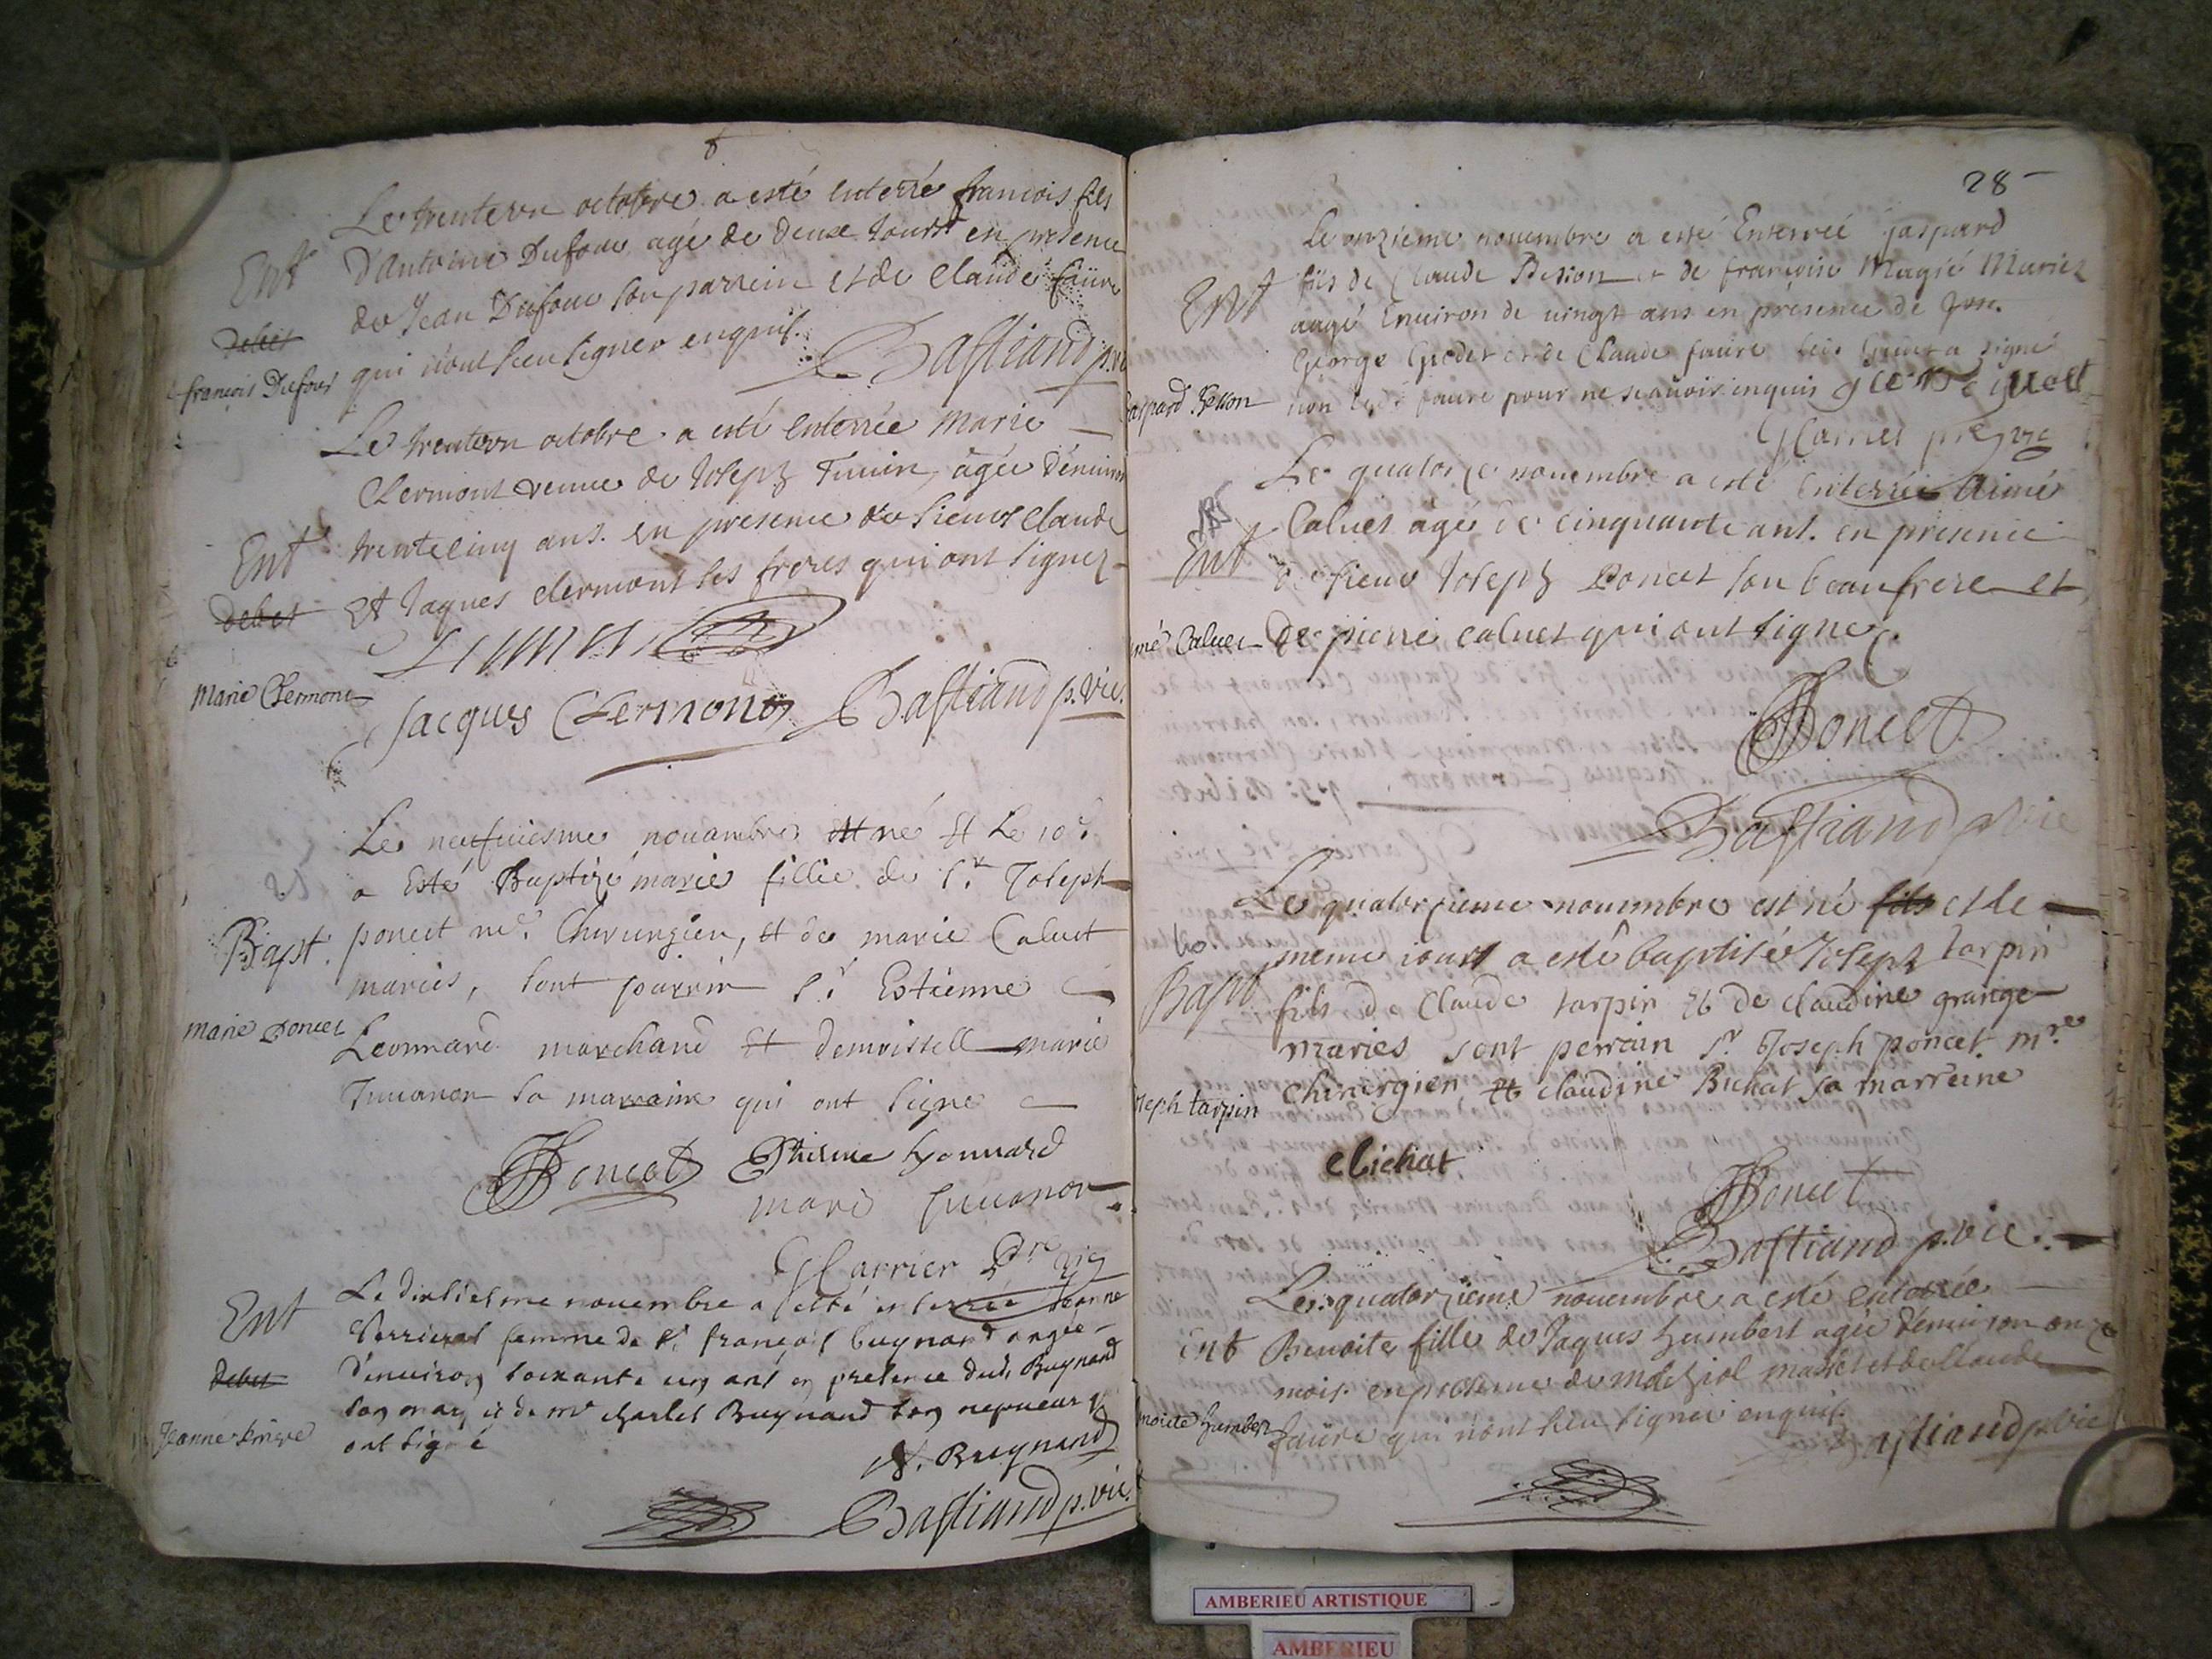 Le trenteun octobre a esté enterré francois fils
Ent d'Antoine Dufour agé de deux jours en presence
de Jean Dufour son parrein et de Claude faure
debet
françois Dufour qui n'ont sceu signer enquis.
Bastiand p. vic
Le trenteun octobre a esté enterrée Marie
Clermont veuve de Joseph agée d'environ
Ent trentecinq ans. en presence de sieurs Claude
debet et Jaques clermont ses freres qui ont signez
Marie Clermont
Jacques Clermont Bastiand p. vic.
Le neufuiesme nouambre est né et Le 10e
a Esté Baptizé marie fillie de sr. Joseph
Bapt. poncet me. Chirurgien, et de marie Caluet
mariés, sont parrin sr. Estienne
marie Poncet Leonnard marchand et demoiselle marie
Juuanon sa marraine qui ont signe
Poncet Estienne Lyonnard
marie Juuanon
Carrier Ptre vic
Ent Le dixiesme nouembre a esté enterrée Jeanne
femme de sr. françois Bugnard angée
debet d'enuiron soixante un ans en presence dud. Bugnard
son mary et de mr charles Bugnard son nepueur qui
Jeanne ont signé
Bugnard
Bastiand p. vic.
28
Le onzieme nouembre a esté Enterrée gaspard
Ent fils de Claude Besson et de françoise Magié Mariez
aagé Enuiron de uingt ans en présence de
George Guedet et de Claude faure signé
gaspard Besson non faure pour ne scauoir enquis
Carrier
Le quatorze nouembre a esté enterrée Aimé
Ent Caluet agé de cinquante ans. en presence
de sieur Joseph Poncet son beaufrere et
Aimé Caluet de pierre caluet qui ont signé.
Poncet
Bastiand p. vic
Le quatorzieme nouembre est né fils et le
Bapt meme jour a esté baptisé Joseph tarpin
fils de Claude tarpin et de claudine grange
maries sont perrain sr. Joseph poncet mre
Joseph tarpin Chirurgien, et claudine Bichat sa marreine
Clichat
Poncet
Bastiand p. vic.
Le quatorzieme nouembre a esté enterrée
Ent Benoite fille de Jaques humbert agée d'enuiron onze
mois. en presence de melchiol et de Claude
Benoite humbert faure qui n'ont sceu signer enquis.
Bastiand p. vic
AMBERIEU ARTISTIQUE
AMBERIEU